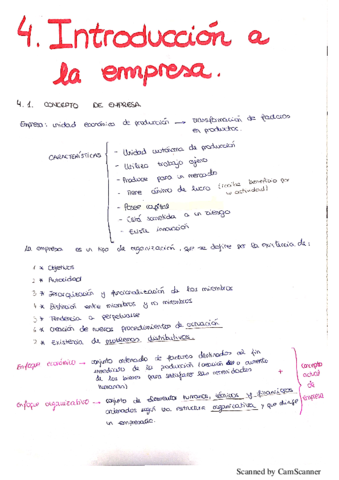 4. Introducción a
la empresa.
4.1. CONCEPTO DE EMPRESA
Empresa: unidad económica de producción → transformación de factores
en productos.
CARACTERÍSTICAS
- Unidad autónoma de producción
- Utiliza trabajo ajeno
- Produce para un mercado
- Tiene ánimo de lucro (recibe beneficio por
su actividad)
- Posee capital
- Está sometida a un riesgo
- Existe innovación
La empresa es un tipo de organización, que se define por la existencia de:
1 * Objetivos
2 * Autoridad
3 * y funcionalización de los miembros
4 * Distinción entre miembros y no miembros
5 * Tendencia a perpetuarse
6 * Creación de nuevos procedimientos de actuación
7 * Existencia de problemas distributivos.
Enfoque económico → conjunto ordenado de factores destinados al fin
inmediato de la producción (creación o aumento
de los bienes para satisfacer las necesidades
humanas)
+
Enfoque organizativo → conjunto de elementos humanos, técnicos y financieros
ordenados según una estructura organizativa y que dirige
un empresario.
concepto
actual
de
empresa
Scanned by CamScanner